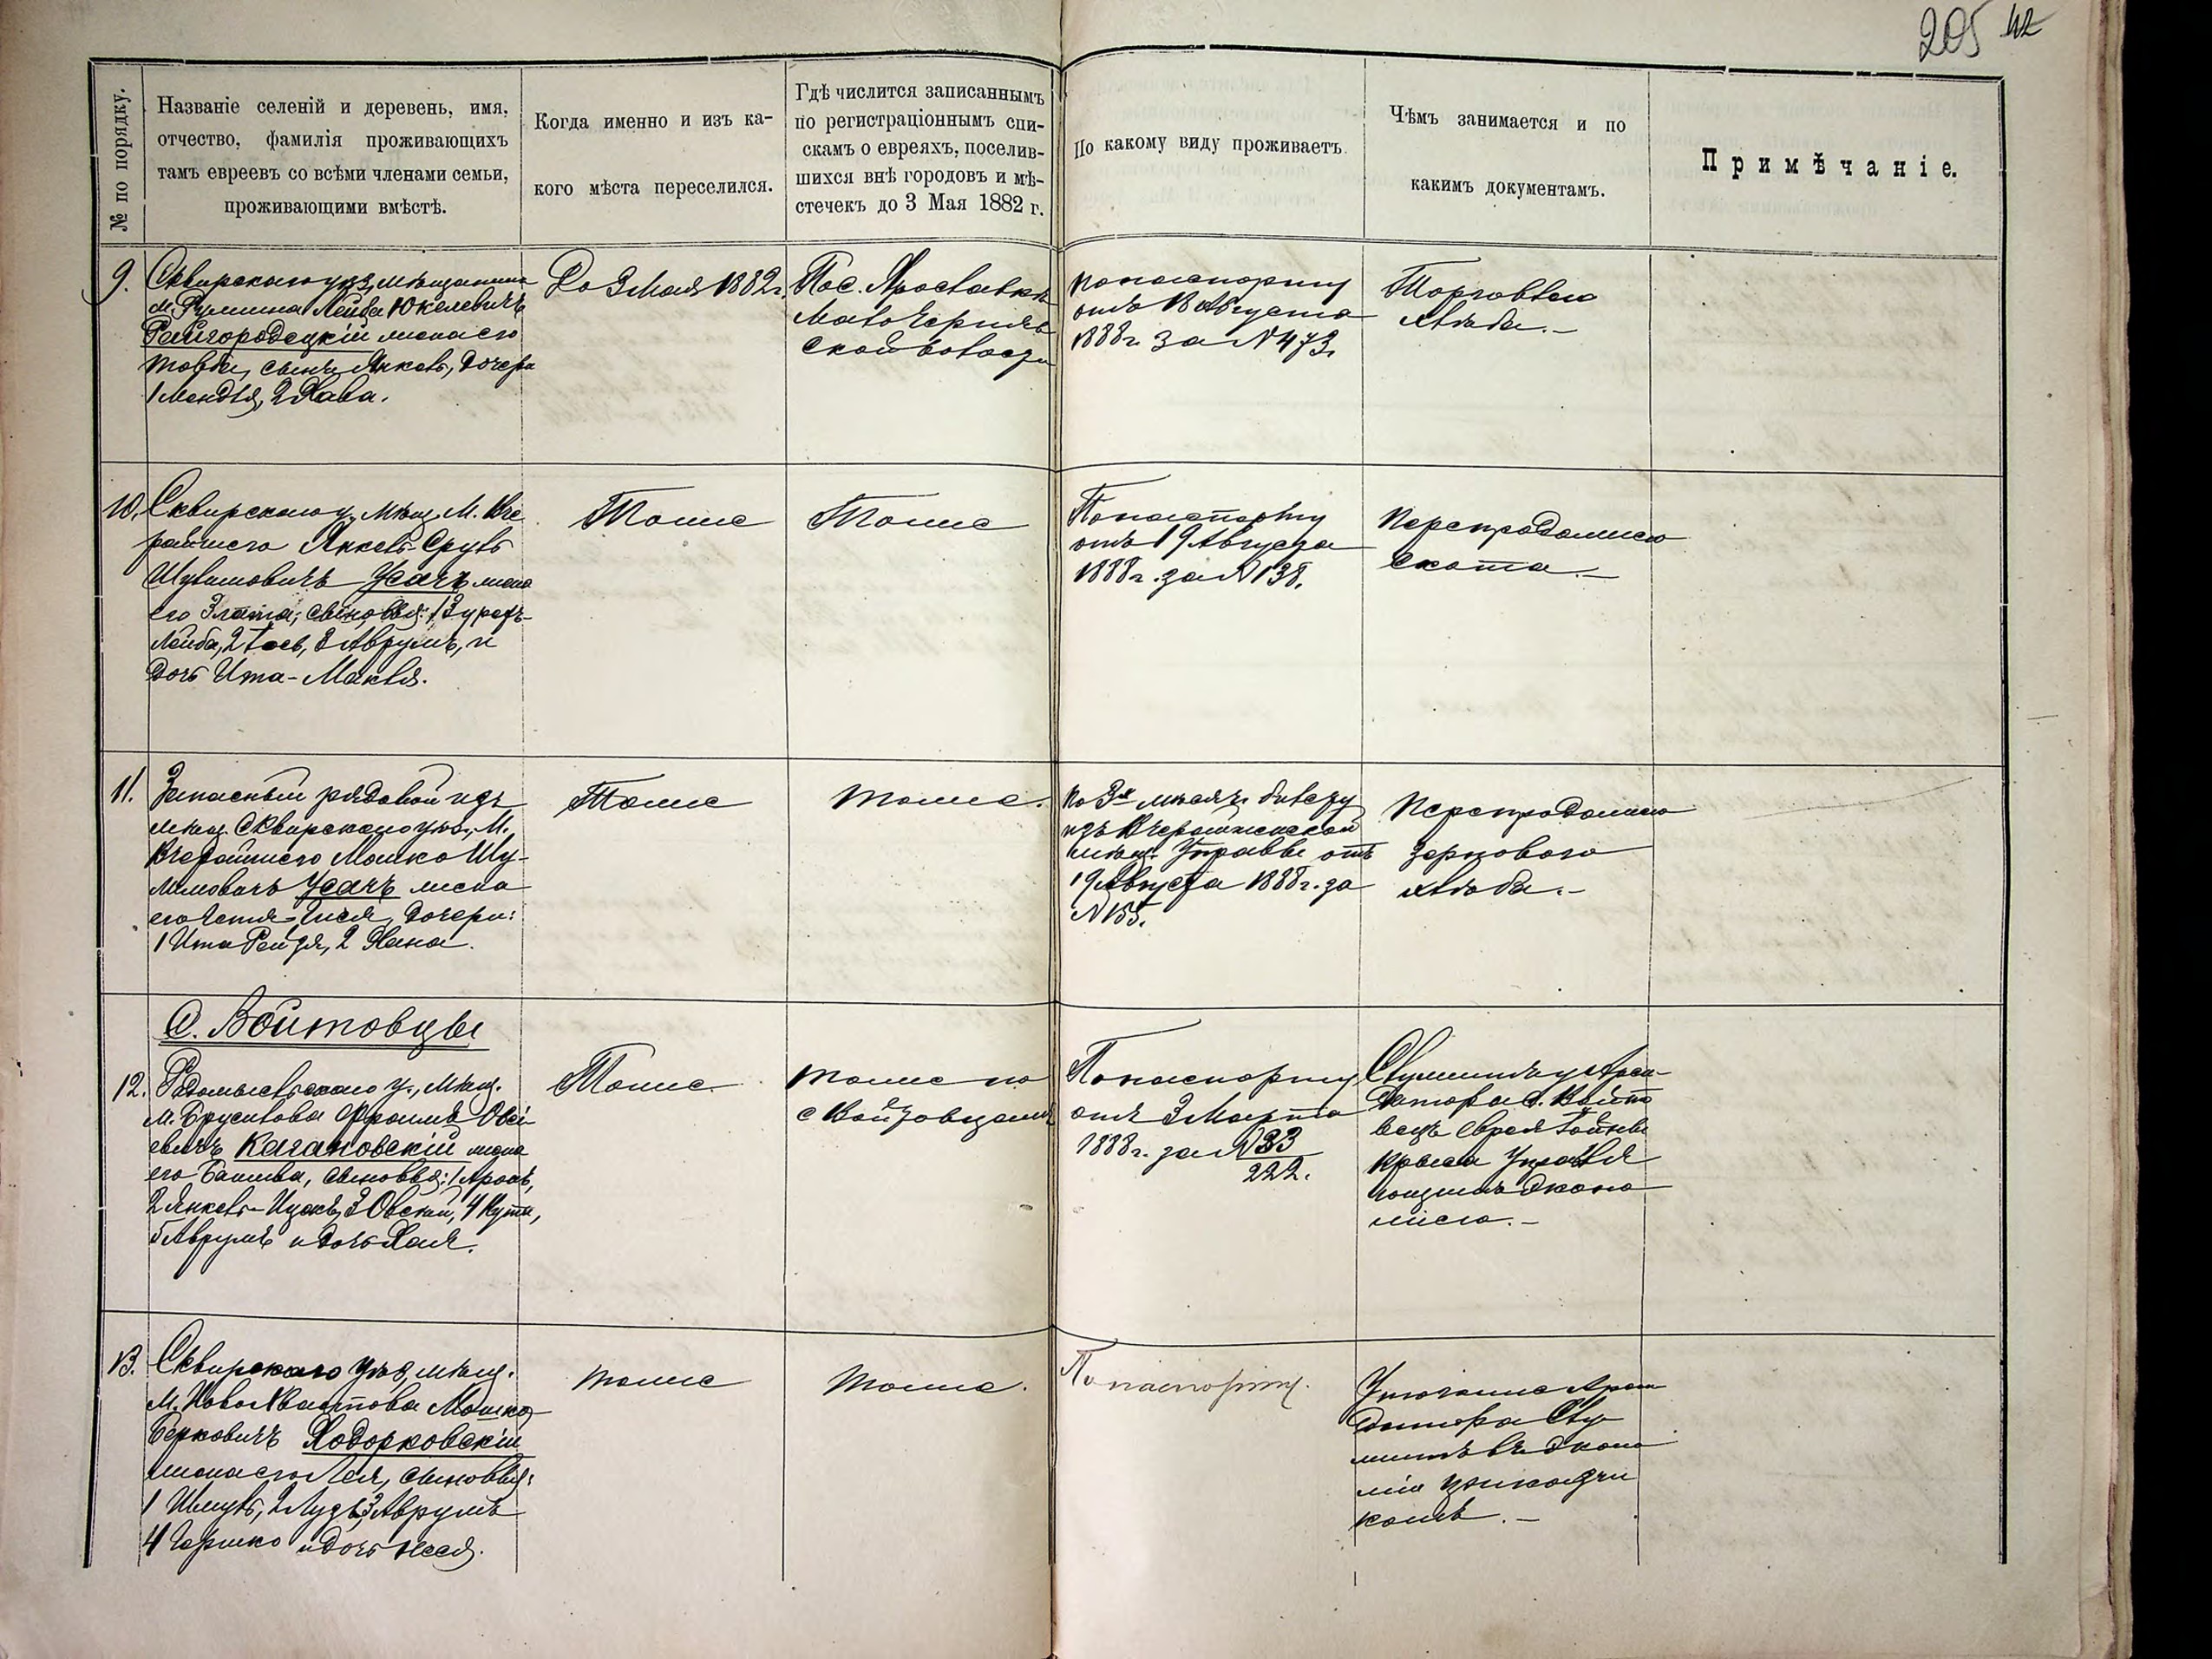 205
№ по порядку.
Названіе селеній и деревень, имя,
отчество, фамилія проживающихъ
тамъ евреевъ со всѣми членами семьи,
проживающими вмѣстѣ.
Когда именно и изъ ка-
кого мѣста переселился.
Гдѣ числится записаннымъ
по регистраціоннымъ спи-
скамъ о евреяхъ, поселив-
шихся внѣ городовъ и мѣ-
стечекъ до 3 Мая 1882 г.
По какому виду проживаетъ.
Чѣмъ занимается и по
какимъ документамъ.
Примѣчаніе.
9.
Сквирскаго уѣз. мѣщанинъ
м. Ружина Лейба Юкелевичъ
Райгородецкій жена его
сынъ Янкель, дочери
1 Мендля, 2 Хава.
До 3 Мая 1882 г.
Пос. Ярославка
Малочерняв
ской волости
по паспорту
отъ 18 Августа
1888 г. за № 473.
Торговлею
хлѣба.-
10.
Сквирскаго у. мѣщ. М. Вче
райшего Янкель-Сруль
Шулимовичъ Усачъ жена
его Злата, сыновья:
Лейба, 2 Іось, 3 Аврумъ, и
дочь Ита-Макля.
Тоже
Тоже
По паспорту
отъ 19 Августа
1888 г. за № 138.
Перепродажею
скота.-
11.
Запасный рядовой изъ
мѣщ. Сквирскаго уѣз. М.
Вчерайшего Мошко Шу-
лимовичъ Усачъ жена
его дочери:
1 Ита Рейзя, 2 Хана.
Тоже
тоже.
По 3х мѣсячн. билету
изъ Вчерайшенской
мѣщ. Управы отъ
19 Августа 1888 г. за
№ 155.
Перепродажею
зернового
хлѣба.-
С. Войтовцы
12.
Радомысльскаго у., мѣщ.
М. Брусилова Фроимъ Овсі-
евичъ Кагановскій жена
его Башива, сыновья: 1 Аронъ,
2 Янкель-Ицокъ, 3 Овсій, 4 Нута,
5 Аврумъ и дочь Хая.
Тоже
тоже по
с. Войтовцамъ
По паспорту
отъ 3 Марта
1888 г. за № 33
222.
Служитъ у Арен-
датора с. Войто
вецъ еврея
Крыса Управля
ющимъ эконо
міею.-
13.
Сквирскаго уѣз. мѣщ.
М. Новохвастова Мошко
Берковичъ Ходорковскій
жена его Лея, сыновья:
1 Шмуль, 2 Лузъ, 3 Аврумъ
4 Гершко и дочь Нося.
тоже
тоже.
По паспорту.
У того же Арен
датора Слу
житъ въ эконо
міи
комъ.-